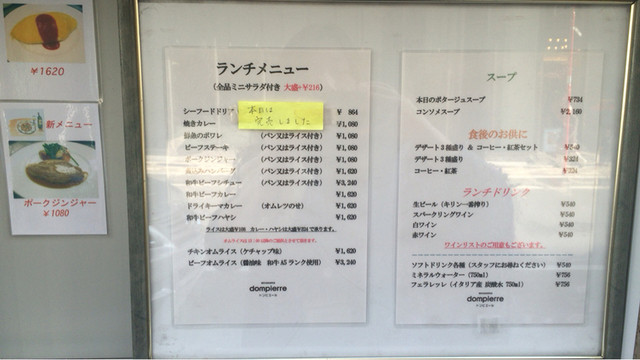 ¥1620
新メニュー
ポークジンジャー
¥1080
ランチメニュー
(全品ミニサラダ付き 大盛+¥216)
本日は
完売しました
シーフードドリア ¥ 864
焼きカレー ¥1,080
鮮魚のポワレ (パン又はライス付き) ¥1,080
ビーフステーキ (パン又はライス付き) ¥1,620
ポークジンジャー (パン又はライス付き) ¥1,080
煮込みハンバーグ (パン又はライス付き) ¥1,620
和牛ビーフシチュー (パン又はライス付き) ¥3,240
和牛ビーフカレー ¥1,620
ドライキーマカレー (オムレツのせ) ¥1,620
和牛ビーフハヤシ ¥1,620
チキンオムライス (ケチャップ味) ¥1,620
ビーフオムライス (醤油味 和牛A5ランク使用) ¥3,240
dompierre
ドンピエール
スープ
本日のポタージュスープ ¥734
コンソメスープ ¥2,160
食後のお供に
デザート3種盛り & コーヒー・紅茶セット ¥540
デザート3種盛り
コーヒー・紅茶
ランチドリンク
生ビール (キリン一番搾り) ¥540
スパークリングワイン ¥540
白ワイン ¥540
赤ワイン ¥540
ワインリストのご用意もございます。
ソフトドリンク各種 (スタッフにお尋ねください) ¥540
ミネラルウォーター (750ml) ¥756
フェラレッレ (イタリア産 炭酸水 750ml) ¥756
dompierre
ドンピエール